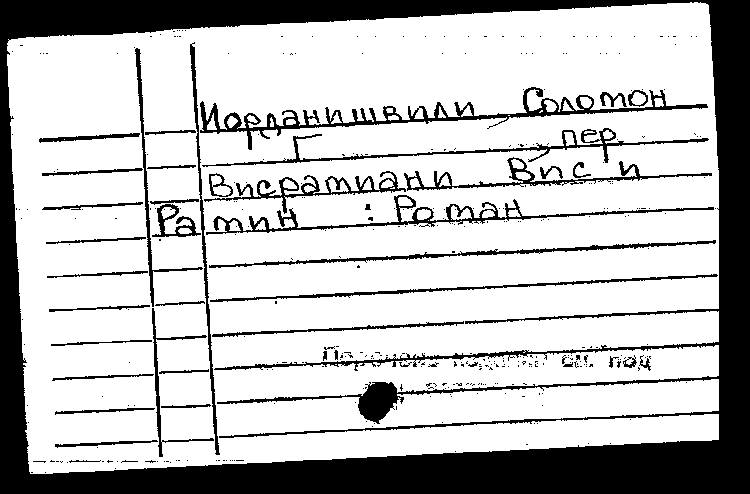 Иорданишвили, Соломон
пер.
Висрамиани. Вис и
Рамин : Роман
Перечень изданий см. под